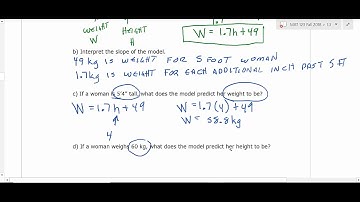 WEIGHT HEIGHT 1.7
W H W = 1.7h+49
b) Interpret the slope of the model.
49 kg IS WEIGHT FOR 5 FOOT WOMAN
1.7kg IS WEIGHT FOR EACH ADDITIONAL INCH PAST 5 FT
c) If a woman is 5'4" tall, what does the model predict her weight to be?
W = 1.7h + 49 W = 1.7(4) + 49
4 W = 58.8 kg
d) If a woman weighs 60 kg, what does the model predict her height to be?